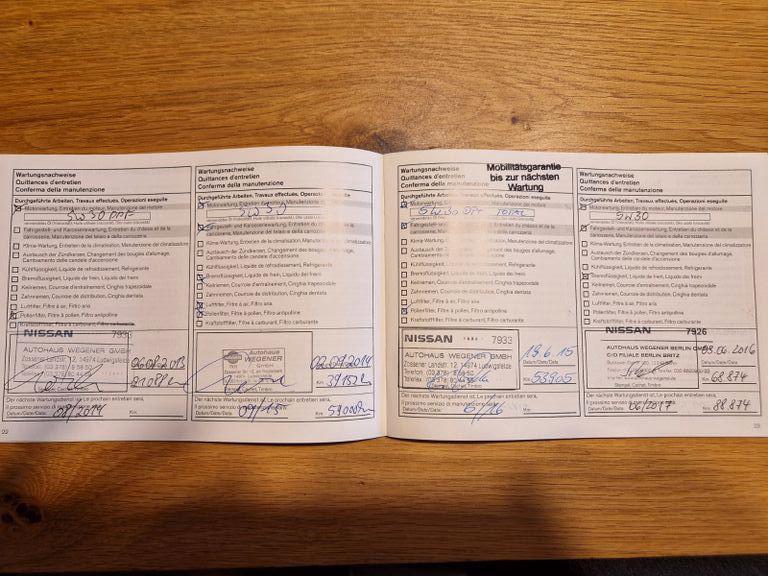 Wartungsnachweise
Quittances d'entretien
Conferma della manutenzione
Durchgeführte Arbeiten, Travaux effectués, Operazioni eseguite
Motorwartung, Entretien du moteur, Manutenzione del motore
5W30 DPF
Fahrgestell- und Karosseriewartung, Entretien du châssis et de la
carrosserie, Manutenzione del telaio e della carrozzeria
Klima-Wartung, Entretien de la climatisation, Manutenzione del climatizzatore
Austausch der Zündkerzen, Changement des bougies d'allumage,
Cambiamento delle candele d'accensione
Kühlflüssigkeit, Liquide de refroidissement, Refrigerante
Bremsflüssigkeit, Liquide de frein, Liquido dei freni
Keilriemen, Courroie d'entraînement, Cinghia trapezoidale
Zahnriemen, Courroie de distribution, Cinghia dentata
Luftfilter, Filtre à air, Filtro aria
Pollenfilter, Filtre à pollen, Filtro antipolline
Kraftstofffilter, Filtre à carburant, Filtro carburante
NISSAN 7933
AUTOHAUS WEGENER GMBH
Zossener Landstr. 12, 14974 Ludwigsfelde
Stempel, Cachet, Timbro
Der nächste Wartungsdienst ist, Le prochain entretien sera,
Il prossimo servizio di manutenzione sarà,
Datum/Date/Data: 08/2014 Km
22
Wartungsnachweise
Quittances d'entretien
Conferma della manutenzione
Durchgeführte Arbeiten, Travaux effectués, Operazioni eseguite
Motorwartung, Entretien du moteur, Manutenzione del motore
5W30
Fahrgestell- und Karosseriewartung, Entretien du châssis et de la
carrosserie, Manutenzione del telaio e della carrozzeria
Klima-Wartung, Entretien de la climatisation, Manutenzione del climatizzatore
Austausch der Zündkerzen, Changement des bougies d'allumage,
Cambiamento delle candele d'accensione
Kühlflüssigkeit, Liquide de refroidissement, Refrigerante
Bremsflüssigkeit, Liquide de frein, Liquido dei freni
Keilriemen, Courroie d'entraînement, Cinghia trapezoidale
Zahnriemen, Courroie de distribution, Cinghia dentata
Luftfilter, Filtre à air, Filtro aria
Pollenfilter, Filtre à pollen, Filtro antipolline
Kraftstofffilter, Filtre à carburant, Filtro carburante
Autohaus
WEGENER
GmbH
Datum/Date/Data
Km 39152
Stempel, Cachet, Timbro
Der nächste Wartungsdienst ist, Le prochain entretien sera,
Il prossimo servizio di manutenzione sarà,
Datum/Date/Data: 09/15 Km 59000
Wartungsnachweise
Quittances d'entretien
Conferma della manutenzione
Mobilitätsgarantie
bis zur nächsten
Wartung
Durchgeführte Arbeiten, Travaux effectués, Operazioni eseguite
Motorwartung, Entretien du moteur, Manutenzione del motore
5W30 DPF TOTAL
Fahrgestell- und Karosseriewartung, Entretien du châssis et de la
carrosserie, Manutenzione del telaio e della carrozzeria
Klima-Wartung, Entretien de la climatisation, Manutenzione del climatizzatore
Austausch der Zündkerzen, Changement des bougies d'allumage,
Cambiamento delle candele d'accensione
Kühlflüssigkeit, Liquide de refroidissement, Refrigerante
Bremsflüssigkeit, Liquide de frein, Liquido dei freni
Keilriemen, Courroie d'entraînement, Cinghia trapezoidale
Zahnriemen, Courroie de distribution, Cinghia dentata
Luftfilter, Filtre à air, Filtro aria
Pollenfilter, Filtre à pollen, Filtro antipolline
Kraftstofffilter, Filtre à carburant, Filtro carburante
NISSAN 7933
AUTOHAUS WEGENER GMBH
Zossener Landstr. 12, 14974 Ludwigsfelde
19.6.15
Datum/Date/Data
Km 53905
Der nächste Wartungsdienst ist, Le prochain entretien sera,
Il prossimo servizio di manutenzione sarà,
Datum/Date/Data: 6/16 Km
Wartungsnachweise
Quittances d'entretien
Conferma della manutenzione
Durchgeführte Arbeiten, Travaux effectués, Operazioni eseguite
Motorwartung, Entretien du moteur, Manutenzione del motore
5W30
Fahrgestell- und Karosseriewartung, Entretien du châssis et de la
carrosserie, Manutenzione del telaio e della carrozzeria
Klima-Wartung, Entretien de la climatisation, Manutenzione del climatizzatore
Austausch der Zündkerzen, Changement des bougies d'allumage,
Cambiamento delle candele d'accensione
Kühlflüssigkeit, Liquide de refroidissement, Refrigerante
Bremsflüssigkeit, Liquide de frein, Liquido dei freni
Keilriemen, Courroie d'entraînement, Cinghia trapezoidale
Zahnriemen, Courroie de distribution, Cinghia dentata
Luftfilter, Filtre à air, Filtro aria
Pollenfilter, Filtre à pollen, Filtro antipolline
Kraftstofffilter, Filtre à carburant, Filtro carburante
NISSAN 7926
AUTOHAUS WEGENER BERLIN GMBH
C/O FILIALE BERLIN BRITZ
03.06.2016
Datum/Date/Data
Km 68.874
Stempel, Cachet, Timbro
Der nächste Wartungsdienst ist, Le prochain entretien sera,
Il prossimo servizio di manutenzione sarà,
Datum/Date/Data: 06/2017 Km 88.874
23